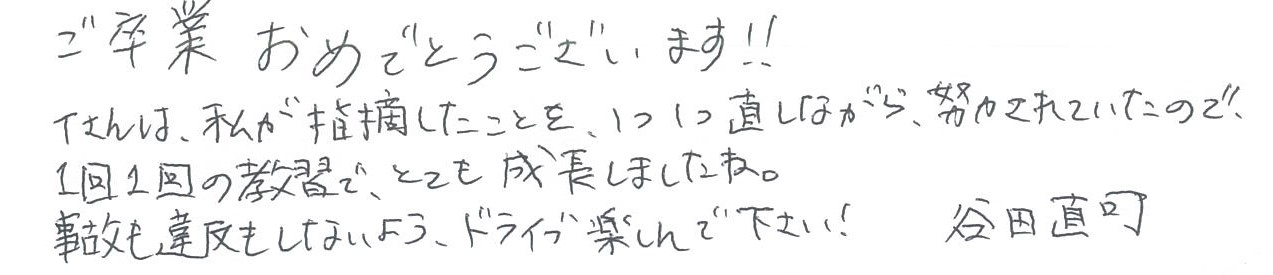 ご卒業 おめでとうございます!!
Tさんは、私が指摘したことを、1つ1つ直しながら、努力されていたので、
1回1回の教習で、とても成長しましたね。
事故も違反もしないよう、ドライブ楽しんで下さい!
谷田直可